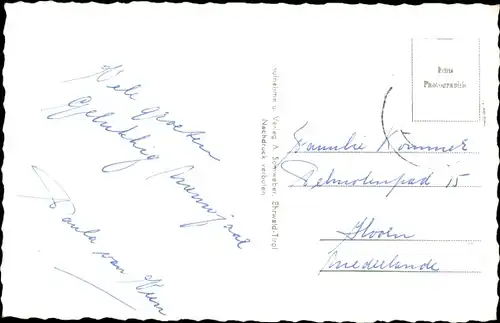 Vele groeten
Gelukkig Nieuwjaar
Paula van
Aufnahme u. Verlag A. Somweber, Ehrwald-Tirol
Nachdruck verboten
Echte
Photographie
Familie Kömmer
15
Niederlande